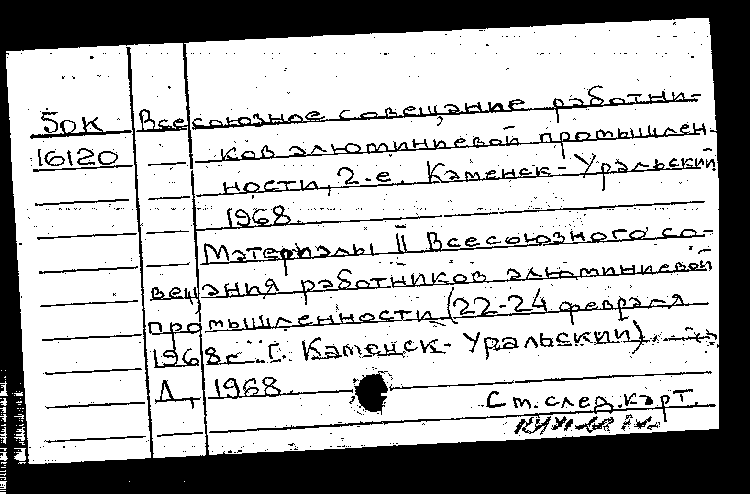 5ок Всесоюзное совещание работни-
16120 ков алюминиевой промышлен-
ности, 2-е. Каменск-Уральский
1968.
Материалы II Всесоюзного со-
вещания работников алюминиевой
промышленности (22-24 февраля
1968г. г. Каменск-Уральский)
Л., 1968.
См. след. карт.